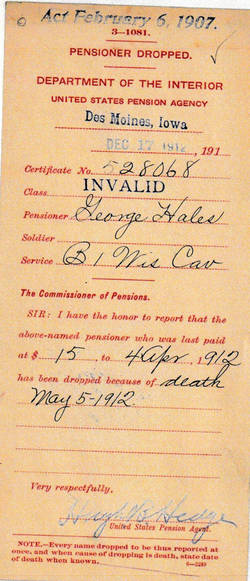 Act February 6, 1907.
3—1081.
PENSIONER DROPPED.
DEPARTMENT OF THE INTERIOR
UNITED STATES PENSION AGENCY
Des Moines, Iowa
DEC 17 1912, 191
Certificate No. 528068
Class INVALID
Pensioner George Hales
Soldier
Service B 1 Wis Cav
The Commissioner of Pensions.
SIR: I have the honor to report that the
above-named pensioner who was last paid
at $ 15 to 4 Apr, 1912
has been dropped because of death
May 5-1912
Very respectfully,
Hedge
United States Pension Agent.
NOTE.—Every name dropped to be thus reported at
once, and when cause of dropping is death, state date
of death when known.